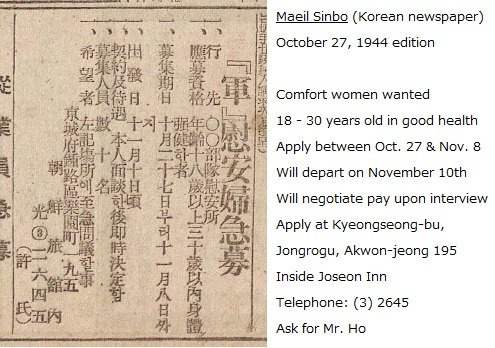 『軍』慰安婦急募
一、行 先 〇〇部隊慰安所
一、應募資格 年齡十八歲以上三十歲以內身體
强健한者
一、募集期日 十月二十七日부터十一月八日까
지
一、出發日 十一月十日頃
一、契約及待遇 本人面談한後即時決定함
一、募集人員 數十名
一、希望者 左記場所에至急問議할事
京城府鍾路區樂園町一九五
朝鮮旅館內
光③二六四五
(許氏)
從業員急募
Maeil Sinbo (Korean newspaper)
October 27, 1944 edition
Comfort women wanted
18 - 30 years old in good health
Apply between Oct. 27 & Nov. 8
Will depart on November 10th
Will negotiate pay upon interview
Apply at Kyeongseong-bu,
Jongrogu, Akwon-jeong 195
Inside Joseon Inn
Telephone: (3) 2645
Ask for Mr. Ho